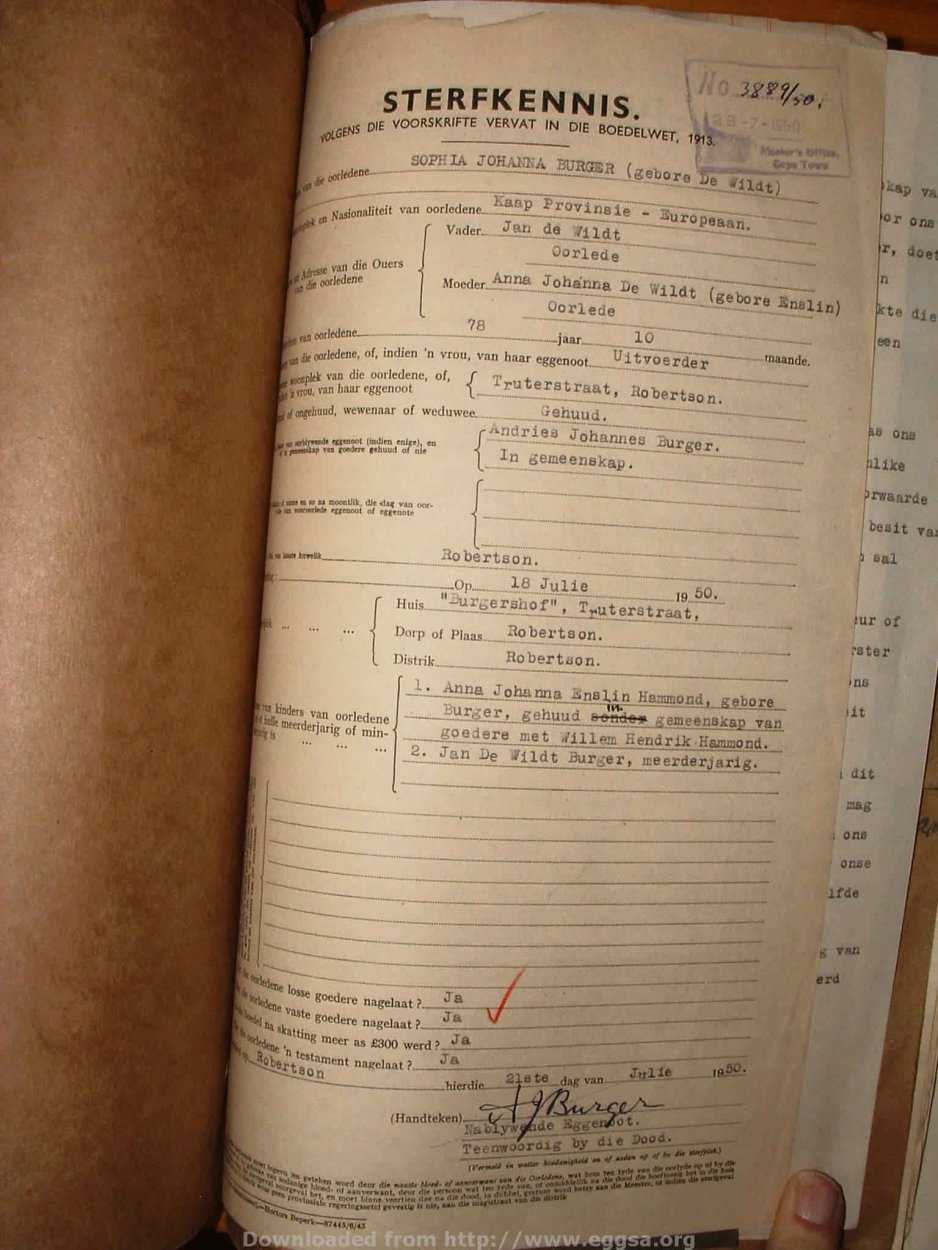 No 3889/50.
28-7-1950
Master's Office,
Cape Town
STERFKENNIS.
VOLGENS DIE VOORSKRIFTE VERVAT IN DIE BOEDELWET, 1913.
van die oorledene SOPHIA JOHANNA BURGER (gebore De Wildt)
en Nasionaliteit van oorledene Kaap Provinsie - Europeaan.
Vader Jan de Wildt
Oorlede
Adresse van die Ouers
van die oorledene
Moeder Anna Johanna De Wildt (gebore Enslin)
Oorlede
van oorledene 78 jaar 10 maande.
van die oorledene, of, indien 'n vrou, van haar eggenoot Uitvoerder
woonplek van die oorledene, of,
'n vrou, van haar eggenoot
Truterstraat, Robertson.
of ongehuud, wewenaar of weduwee Gehuud.
van oorblywende eggenoot (indien enige), en
gemeenskap van goedere gehuud of nie
Andries Johannes Burger.
In gemeenskap.
name en so na moontlik, die dag van oor-
van vooroorlede eggenoot of eggenote
van laaste huwelik Robertson.
Op 18 Julie 1950.
Huis "Burgershof", Truterstraat,
Dorp of Plaas Robertson.
Distrik Robertson.
van kinders van oorledene
of hulle meerderjarig of min-
is
1. Anna Johanna Enslin Hammond, gebore
Burger, gehuud sonder in gemeenskap van
goedere met Willem Hendrik Hammond.
2. Jan De Wildt Burger, meerderjarig.
die oorledene losse goedere nagelaat ? Ja
die oorledene vaste goedere nagelaat ? Ja
boedel na skatting meer as £300 werd ? Ja
die oorledene 'n testament nagelaat ? Ja
Robertson hierdie 21ste dag van Julie 1950.
(Handteken) AJ Burger
Nablywende Eggenoot.
Teenwoordig by die Dood.
(Vermeld in watter hoedanigheid en of aldan op of by die sterfplek)
Beperk—87445/6/45
kap va
or ons
r, doet
n
kte die
een
as ons
like
orwaarde
besit va
sal
eur of
rster
ns
it
dit
mag
ons
onse
lfde
g van
erd
Downloaded from http://www.eggsa.org